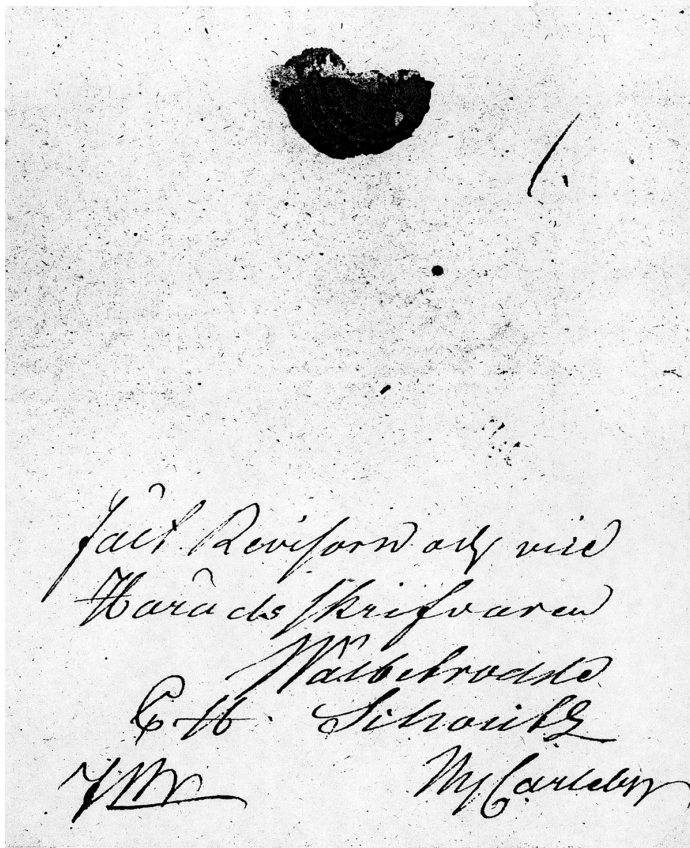 Fält Revisorn och vice
Häradsskrifvaren
Wälbetrodde
C. H. Schoultz
Ny Carleby